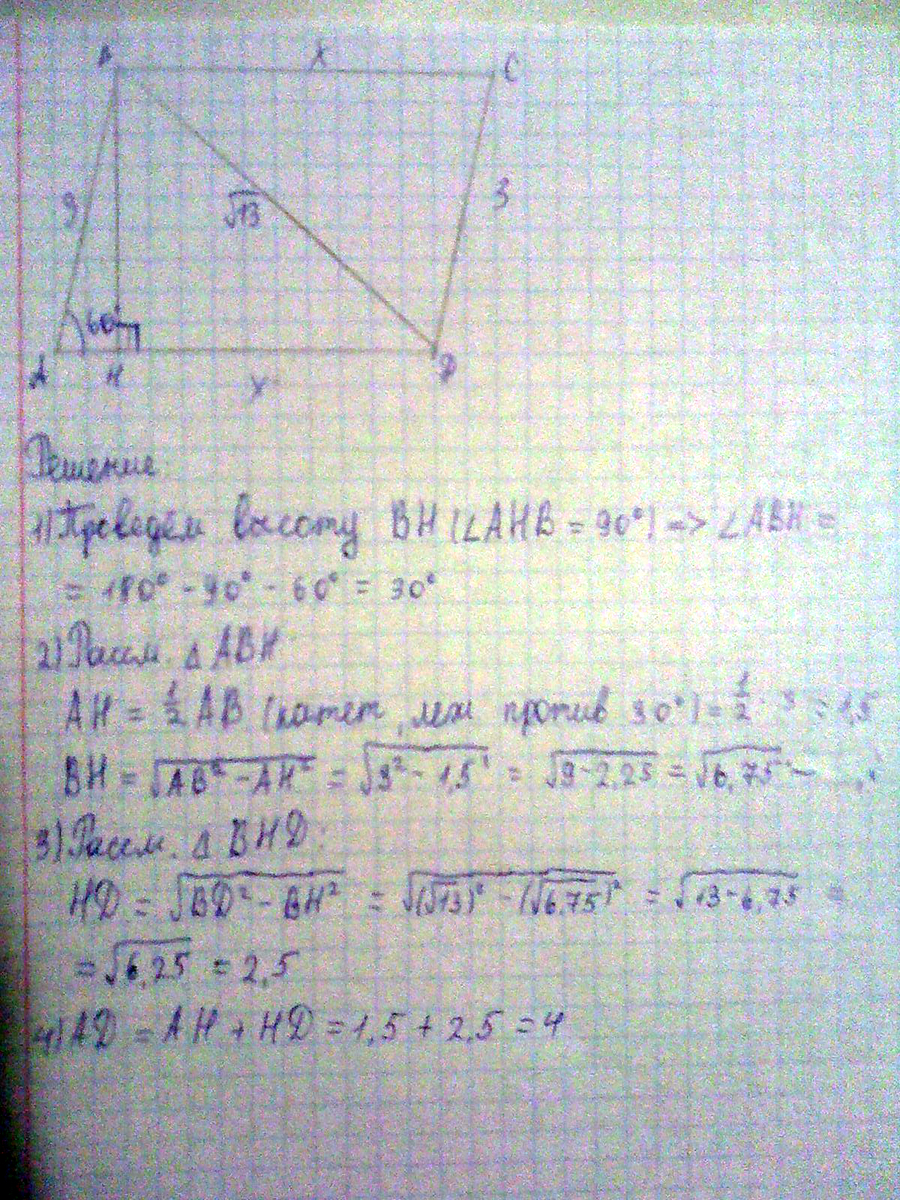 B X C
3 √13 3
60°
A H X D
Решение:
1) Проведём высоту BH (∠AHB = 90°) => ∠ABH =
= 180° - 90° - 60° = 30°
2) Рассм. △ABH:
AH = 1/2 AB (катет, леж против 30°) = 1/2 · 3 = 1,5
BH = √(AB² - AH²) = √(3² - 1,5²) = √(9 - 2,25) = √6,75
3) Рассм. △BHD:
HD = √(BD² - BH²) = √((√13)² - (√6,75)²) = √(13 - 6,75) =
= √6,25 = 2,5
4) AD = AH + HD = 1,5 + 2,5 = 4